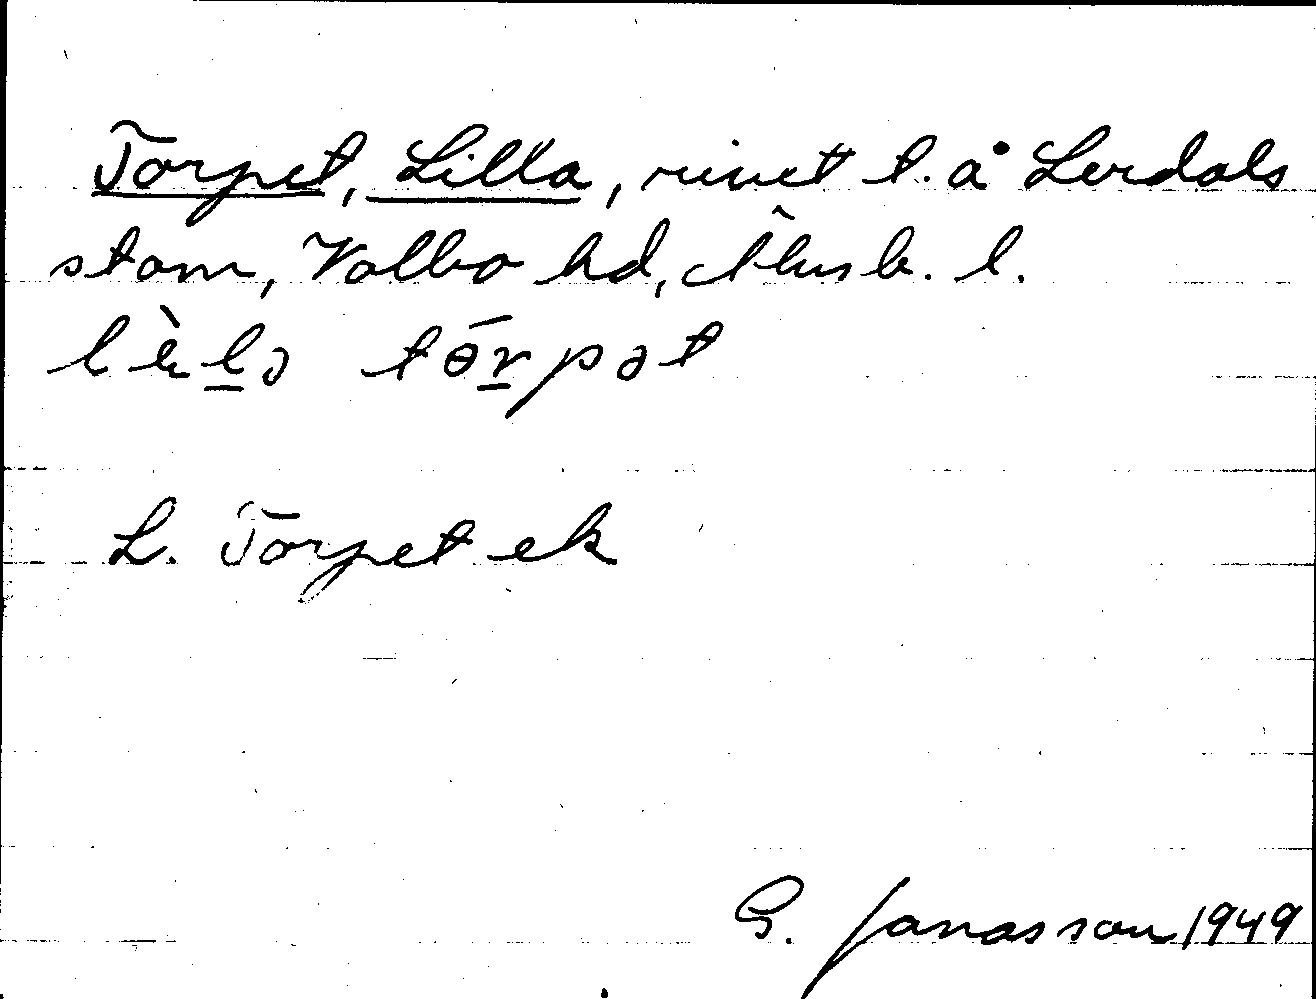 Torpet, Lilla, rivet t. å Lerdals
stom, Valbo hd, Älvsb. l.
lèlə tɵ́rpət
L. Torpet ek
G. Jonasson 1949